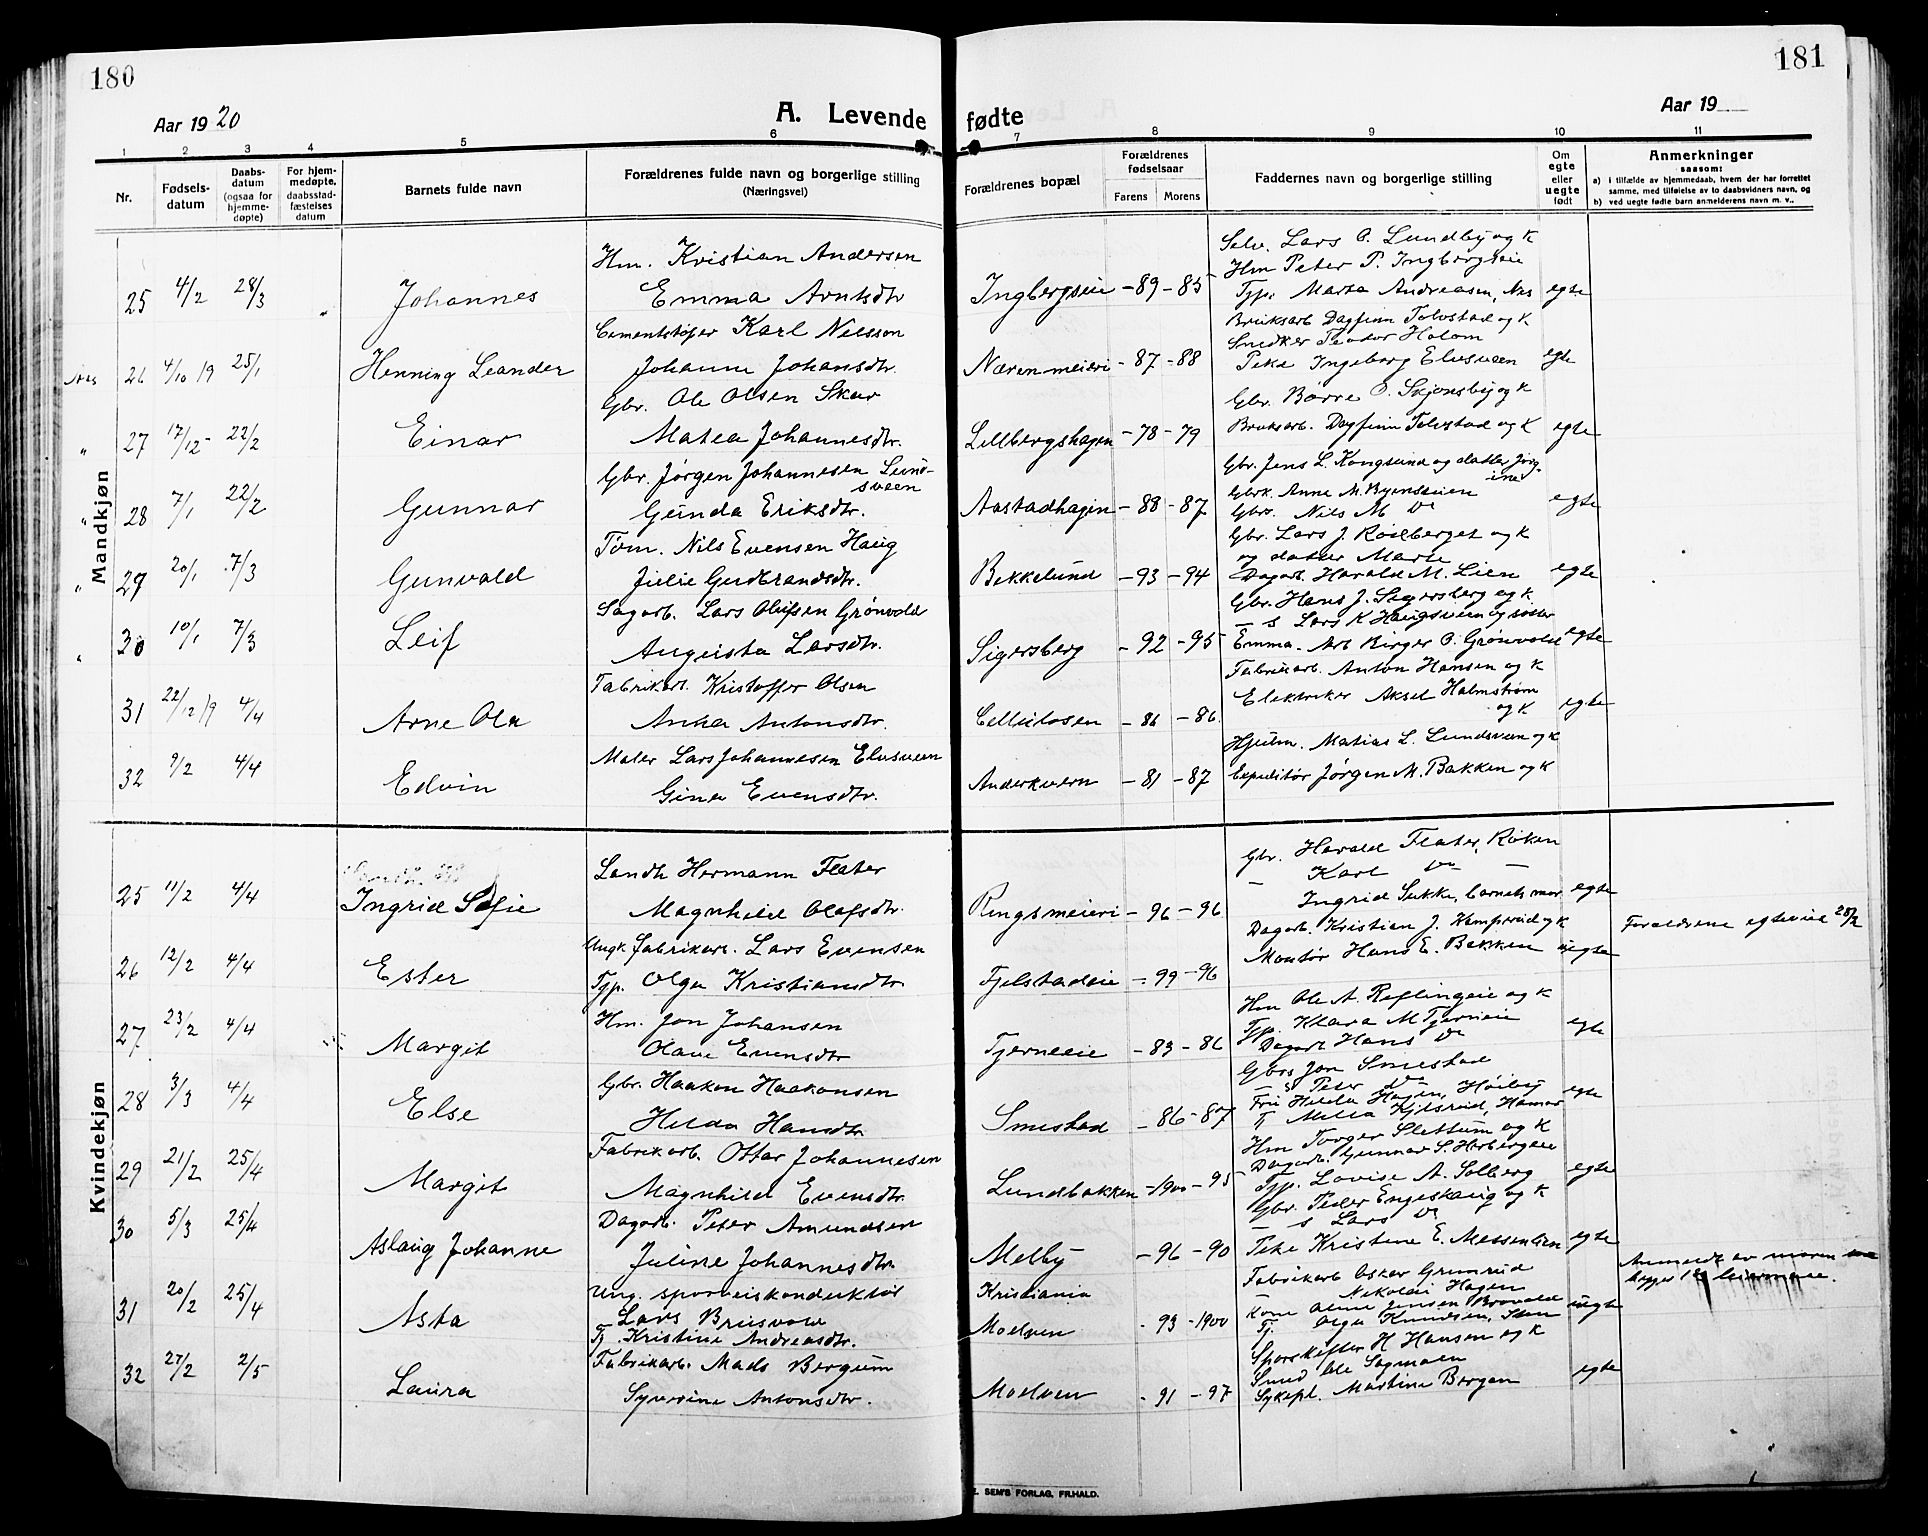 180
181
Aar 1920
A. Levende fødte
Aar 19
1 2 3 4 5 6 7 8 9 10 11
Nr.
Fødsels-
datum
Daabs-
datum
(ogsaa for
hjemme-
døpte)
For hjem-
medøpte,
daabsstad-
fæstelses
datum
Barnets fulde navn
Forældrenes fulde navn og borgerlige stilling
(Næringsvei)
Forældrenes bopæl
Forældrenes
fødselsaar
Farens Morens
Faddernes navn og borgerlige stilling
Om
egte
eller
uegte
født
Anmerkninger
saasom:
a) i tilfælde av hjemmedaab, hvem der har forrettet
samme, med tilføielse av to daabsvidners navn, og
b) ved uegte fødte barn anmelderens navn m. v..
Mandkjøn
Hm. Kristian Andersen
Selv. Lars O. Lundby og k
Hm Peter P. Ingbergseie
25 4/2 28/3 Johannes Emma Arntsdtr Ingbergseie -89 -85 Typ. Marta Andreasen, Nes egte
Cementstøper Karl Nilsson
Bruksarb Dagfinn Tolvstad og k
Snedker Teodor Holom
Nes 26 4/10 19 25/1 Henning Leander Johanne Johansdtr. Næren meieri -87 -88 Pike Ingeborg Elvsveen egte
Gbr. Ole Olsen Skar
Gbr. Borre O. Skjønsby og k
" 27 17/12 22/2 Einar Matea Johannesdtr. Lillbergshagen -78 -79 Bruksarb. Dagfinn Tolvstad og k egte
Gbr. Jørgen Johannesen Lund-
sveen
Gbr. Jens L. Kongsund og datter Jørg-
ine
Gbrk. Anne M. Byenseien
" 28 7/1 22/2 Gunnar Gunda Eriksdtr. Aastadhagen -88 -87 Gbr. Nils M do egte
Tøm. Nils Evensen Haug
Gbr. Lars J. Roselberget og k
og datter Marie
" 29 20/1 7/3 Gunvald Julie Gudbrandsdtr. Bekkelund -93 -94 Dagarb. Harald M. Lien egte
Sagarb. Lars Olufsen Grønvold
Gbr. Hans J. Sigersberg og k
— s Lars K Haugsveen og søster
" 30 10/1 7/3 Leif Augusta Larsdtr. Sigersberg -92 -95 Emma. Arb Birger O. Grønvold egte
Fabrikarb. Kristoffer Olsen
Fabrikarb. Anton Hansen og k
31 22/12 19 4/4 Arne Ola Anna Antonsdtr. Cellulosen -86 -86. Elektriker Aksel Holmstrøm
og k egte
Maler Lars Johannesen Elvsveen
Hjulm. Matias L. Lundsveen og k
32 9/2 4/4 Edvin Gina Evensdtr. Anderkvern -81 -87 Expeditør Jørgen M. Bakken og k
Kvindekjøn
Landh Hermann Flater
Gbr. Harald Flater, Roken
— Karl do —
25 11/2 4/4 Ingrid Sofie Magnhild Olafsdtr. Ringsmeieri -96 -96 Ingrid Sukke, barnets mor egte
Ungk fabrikarb. Lars Evensen
Dagarb. Kristian J. Kampsrud og k
Forældrene egteviet 28/2
26 12/2 4/4 Ester Typ. Olga Kristiansdtr. Fjelstadeie -99 -96 Montør Hans E. Bakken uegte
Hm. Jon Johansen
Hm Ole A. Reflingeie og k
Typ. Klara M Tjerneie
27 23/2 4/4 Margit Olave Evensdtr Tjerneeie -83 -86 Dagarb Hans do egte
Gbr. Haakon Haakonsen
Gbrs Jon Smestad
— s Peter do
Fru Helda Hagen, Høiby
28 3/3 4/4 Else Helda Hansdtr Smestad -86 -87 Fr Milla Kjelsrud, Hamar egte
Fabrikarb. Ottar Johannesen
Hm Torger Slettum og k
Dagarb. Gunnar S. Horbergeie
29 21/2 25/4 Margit Magnhild Evensdtr. Lundbakken -1900 -95 Typ. Lovise A. Solberg egte
Dagarb. Peter Amundsen
Gbr. Peder Engeskaug og k
— s Lars do
30 5/3 25/4 Aslaug Johanne Juline Johannesdtr. Melby -96 -90 Pike Kristine E. Messenlien egte
Ung. sporveiskonduktør
Kristiania
Fabrikarb Oskar Grimrud
Nikolai Hagen
Anmeldt av moren
31 20/2 25/4 Asta Lars Brusvolw
Tj. Kristine Andreasdtr. Moelven -93 -1900 Kone Jensen Brovold
Tj. Olga Knudsen, uegte
Fabrikarb. Mads Bergum
Sporskifter H Hansen og k
Smed Ole Sagmoen
32 27/2 2/5 Laura Syverine Antonsdtr. Moelven -91 -97 Sykepl. Martine Bergen egte
E. SEM'S FORLAG, FR.HALD.